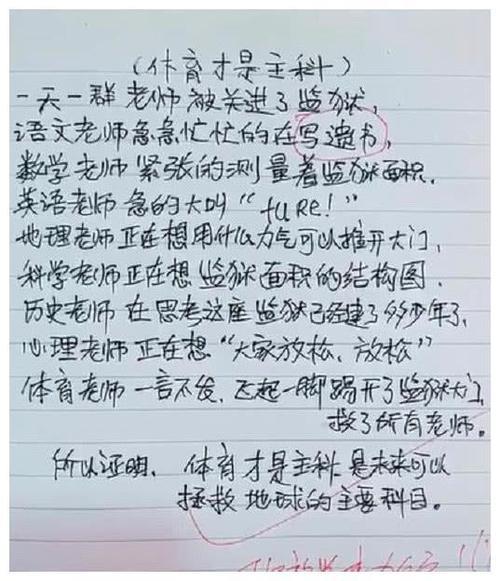 (体育才是主科)
一天一群老师被关进了监狱,
语文老师急急忙忙的在写遗书,
数学老师紧张的测量着监狱面积.
英语老师急的大叫“fure!”
地理老师正在想用什么力气可以推开大门,
科学老师正在想监狱面积的结构图.
历史老师在思考这座监狱已经建了多少年了,
心理老师正在想“大家放松、放松”
体育老师一言不发,飞起一脚踢开了监狱大门,
救了所有老师。
所以证明,体育才是主科是未来可以
拯救地球的主要科目。